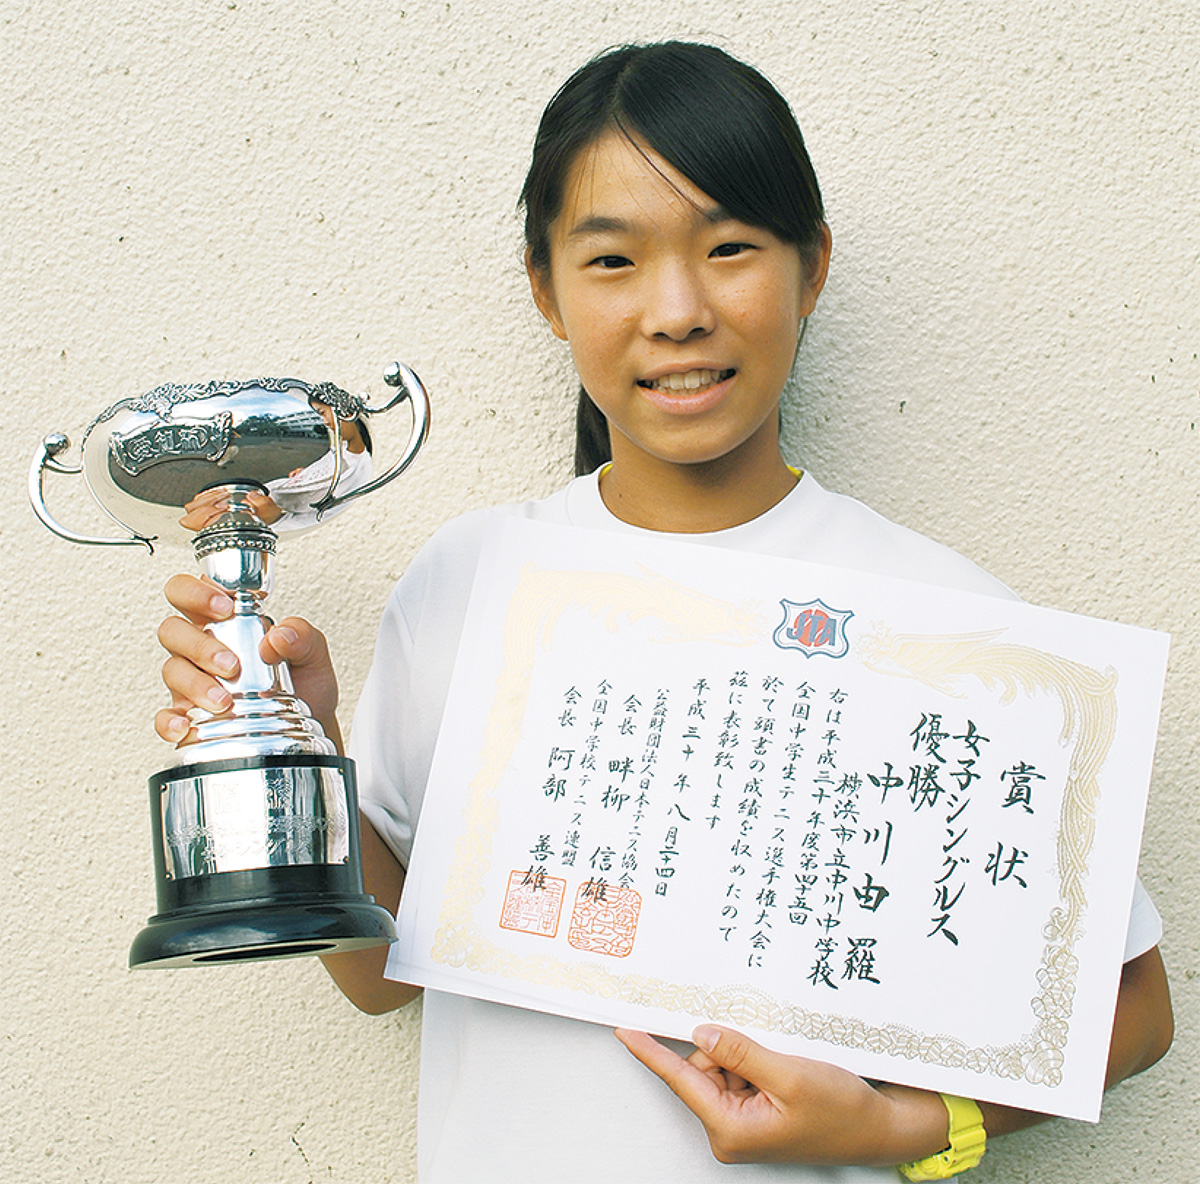 賞状
女子シングルス
優勝
中川由羅
横浜市立中川中学校
右は平成三十年度第四十五回
全国中学生テニス選手権大会に
於て頭書の成績を収めたので
茲に表彰致します
平成三十年八月二十四日
公益財団法人日本テニス協会
会長 畔柳 信雄
全国中学校テニス連盟
会長 阿部 善雄
JTA